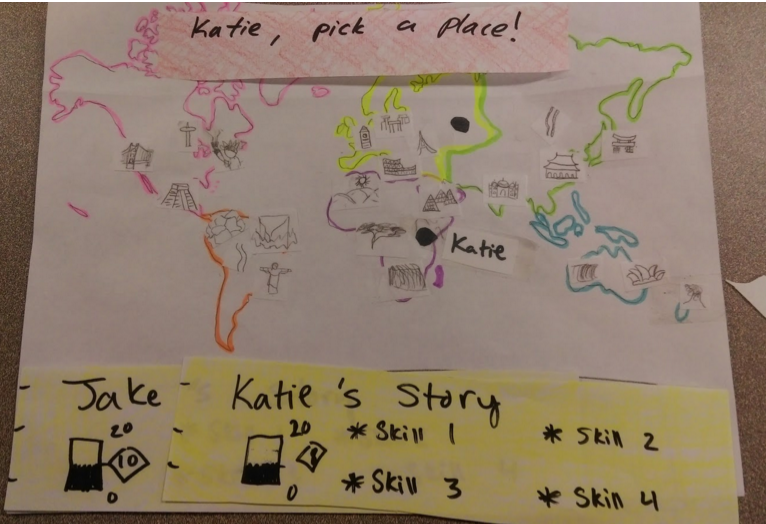 Katie, pick a place!
Katie
Jake
20
10
0
Katie's Story
20
0
* Skill 1
* Skill 2
* Skill 3
* Skill 4